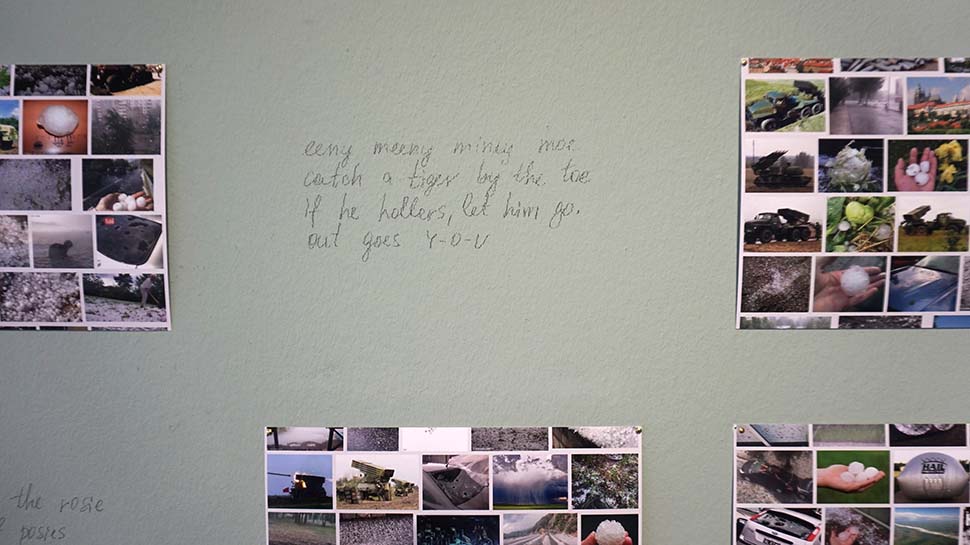 eeny meeny miniy moe
catch a tiger by the toe
if he hollers, let him go.
out goes Y-O-U
the rosie
posies
HAIL